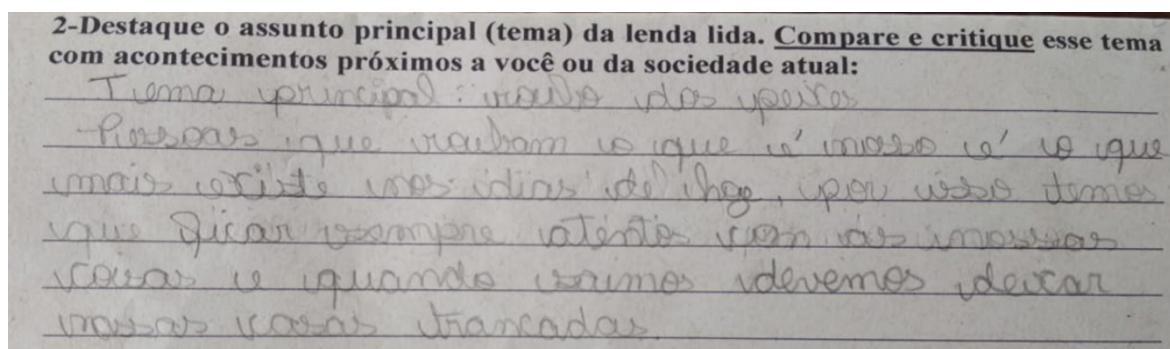 2-Destaque o assunto principal (tema) da lenda lida. Compare e critique esse tema
com acontecimentos próximos a você ou da sociedade atual:
Tema principal: roubo dos peixes
Pessoas que roubam o que é nosso é o que
mais existe nos dias de hoje, por isso temos
que ficar sempre atentos com as nossas
coisas e quando saimos devemos deixar
nossas casas trancadas.